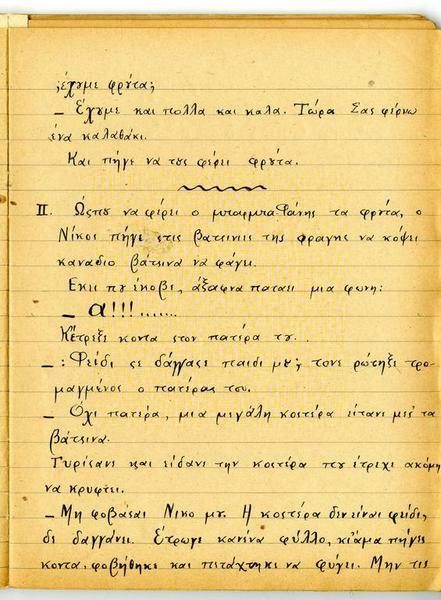 ;έχουμε φρούτα;
— Εχουμε και πολλα και καλα. Τώρα Σας φέρνω
ένα καλαθάκι.
Και πήγε να τους φέρει φρούτα.
II. Ωςπου να φέρει ο μπαρμπα-Φάνης τα φρούτα, ο
Νίκος πήγε στις βατσινιες της φραγης να κόψει
κανα-διο βάτσινα να φάγει.
Εκει που έκοβε, άξαφνα παταει μια φωνη:
— α!!!.......
Κ' έτρεξε κοντα στον πατέρα του.
— : Φείδι σε δάγγασε παιδι μου; τονε ρώτηξε τρο-
μαγμένος ο πατέρας του.
— Όχι πατέρα, μια μεγάλη κοστέρα είτανι μες τα
βάτσινα.
Γυρίσανε και είδανι την κοστέρα που έτρεχι ακόμη
να κρυφτει.
— Μη φοβάσαι Νικο μου. Η κοστέρα δεν είναι φείδι,
δε δαγγάνει. Ετρωγε κανένα φύλλο, κι άμα πήγες
κοντα, φοβήθηκε και πετάχτηκε να φύγει. Μην τις